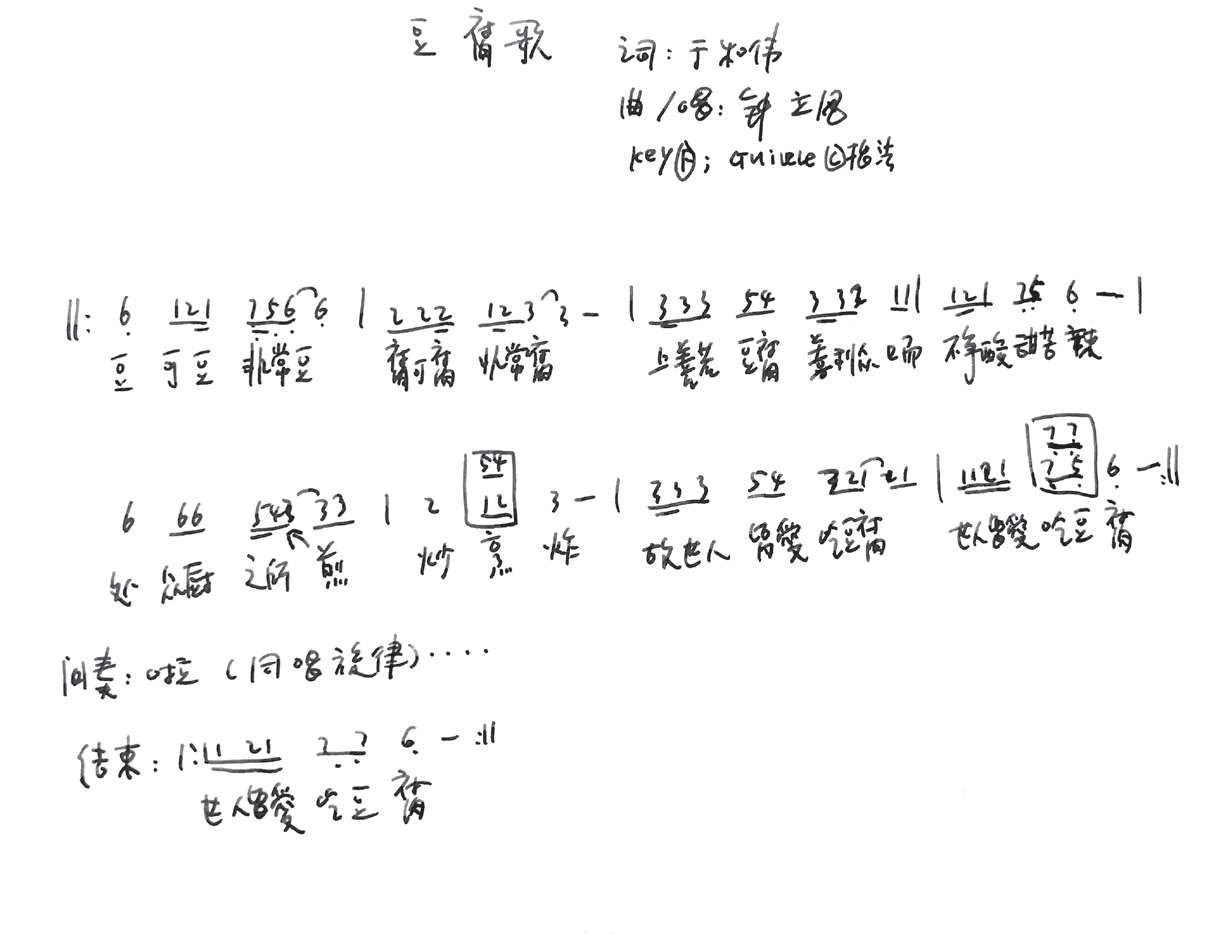 豆腐歌 词：于和伟
曲/唱：钟立风
key F；Guilele C 指法
||: 6 121 756 6 | 222 123 3 - | 333 54 333 11 | 121 75 6 - |
豆 可豆 非常豆 腐可腐 非常腐 上善若 豆腐 善利众口而 不争酸甜苦辣
54 77
6 66 543 33 | 2 12 3 - | 333 54 221 21 | 1121 75 6 - :||
处 众厨 之所 煎 炒 烹 炸 故世人 皆愛 吃豆腐 世人皆愛 吃豆 腐
间奏：啦（同唱旋律）····
结束：|: 11 21 7 7 6 - :||
世人皆愛 吃豆 腐